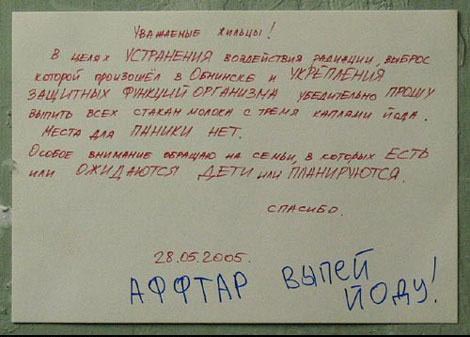 Уважаемые жильцы!
В целях УСТРАНЕНИЯ воздействия радиации, выброс
которой произошёл в Обнинске и УКРЕПЛЕНИЯ
ЗАЩИТНЫХ ФУНКЦИЙ ОРГАНИЗМА убедительно ПРОШУ
выпить всех стакан молока с тремя каплями йода.
Места для ПАНИКИ НЕТ.
Особое внимание обращаю на семьи, в которых ЕСТЬ
или ОЖИДАЮТСЯ ДЕТИ или ПЛАНИРУЮТСЯ.
Спасибо.
28.05.2005.
АФФТАР ВЫПЕЙ
ЙОДУ!